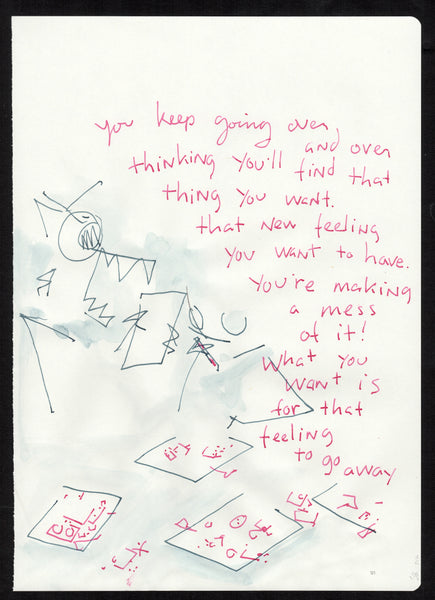 you keep going over,
and over
thinking you'll find that
thing you want.
that new feeling
you want to have.
You're making
a mess
of it!
what you
want is
for that
feeling
to go
away